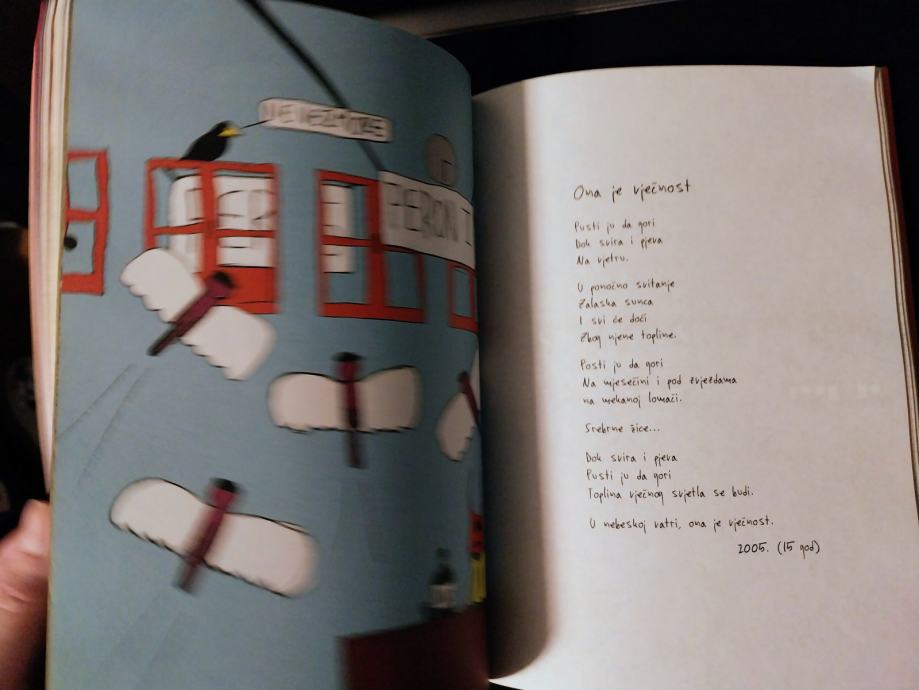 NEVERMORE
PERONI
Ona je vječnost
Pusti ju da gori
Dok svira i pjeva
Na vjetru.
U ponoćno svitanje
Zalaska sunca
I svi će doći
Zbog njene topline.
Posti ju da gori
Na mjesečini i pod zvjezdama
na mekanoj lomači.
Srebrne žice...
Dok svira i pjeva
Pusti ju da gori
Toplina vječnog svjetla se budi.
U nebeskoj vatri, ona je vječnost.
2005. (15 god)